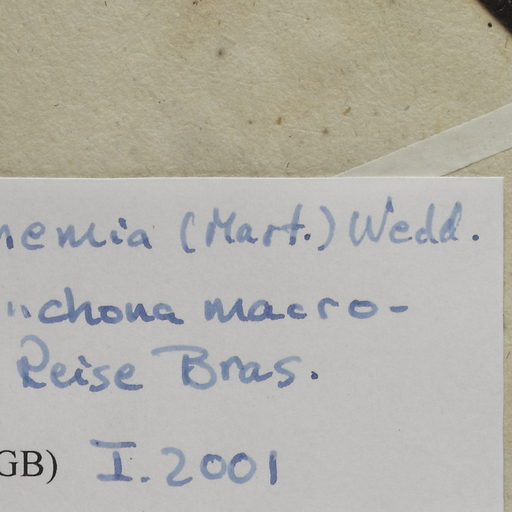 nemia (Mart.) Wedd.
inchona macro-
Reise Bras.
GB) I. 2001